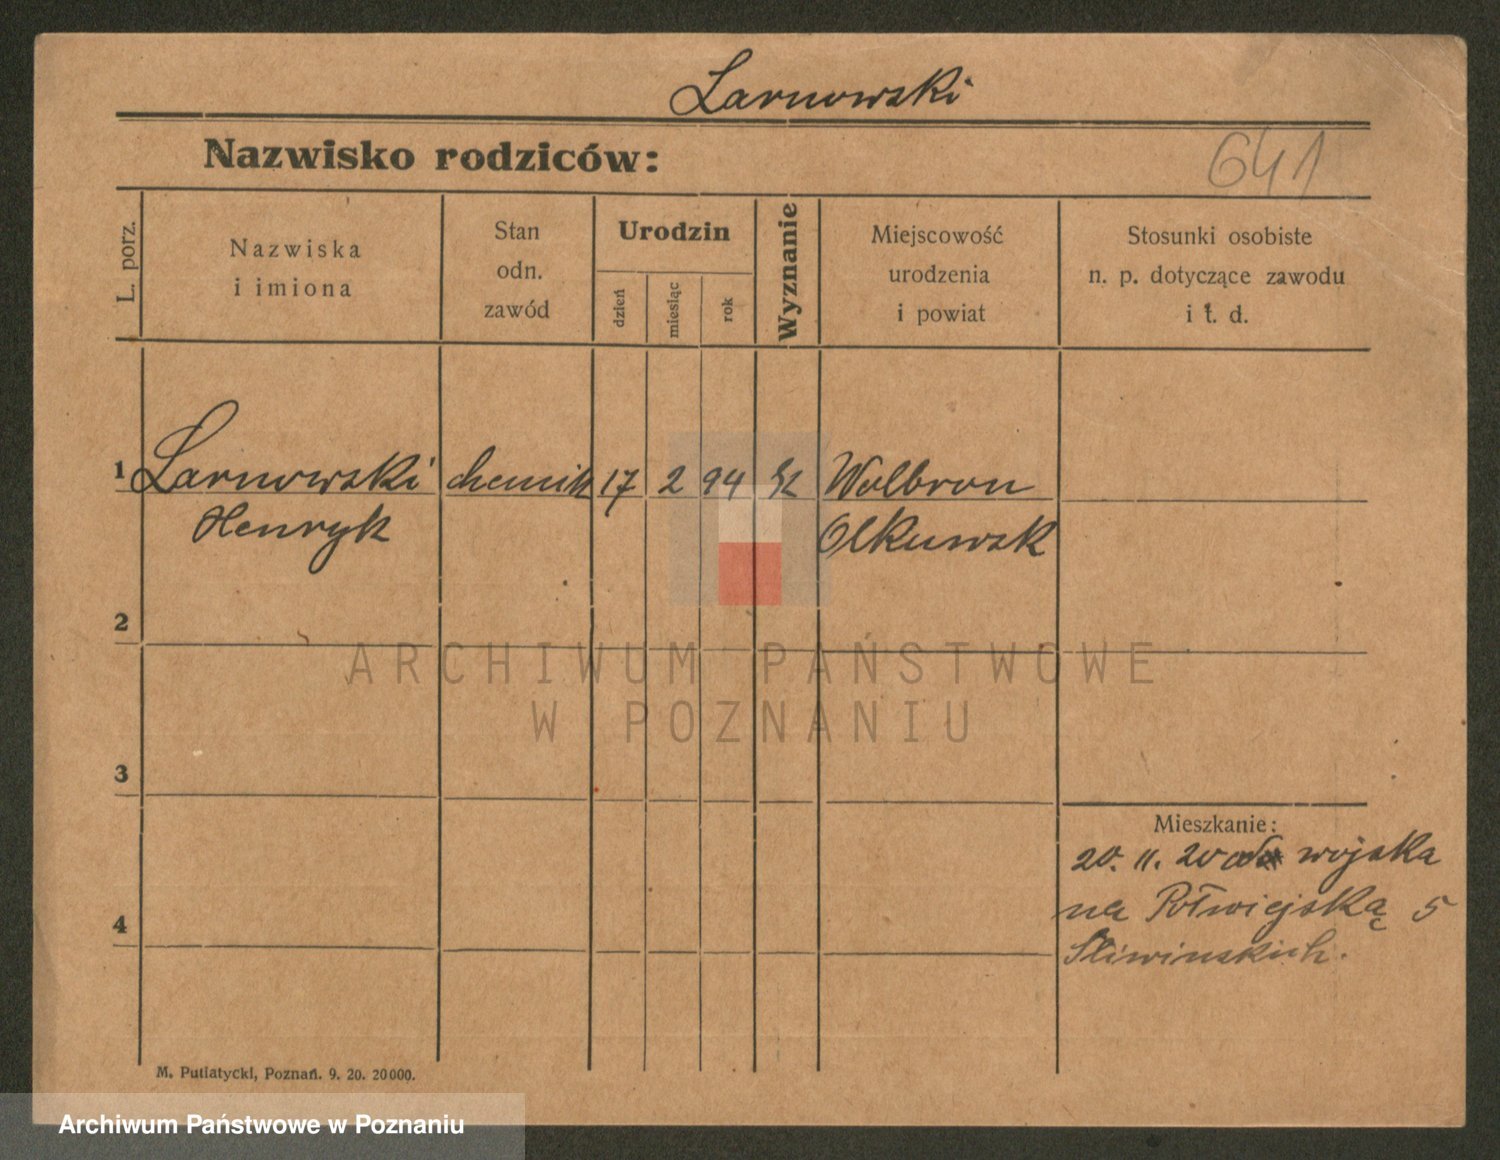 Larnowski
Nazwisko rodziców:
641
L. porz.
Nazwiska
i imiona
Stan
odn.
zawód
Urodzin
dzień
miesiąc
rok
Wyznanie
Miejscowość
urodzenia
i powiat
Stosunki osobiste
n. p. dotyczące zawodu
i t. d.
1 Larnowski chemik 17 2 94 Wolbron
Henryk Olkuwsk
2
ARCHIWUM PAŃSTWOWE
W POZNANIU
3
Mieszkanie:
20. 11. 20 wojska
na Półwiejską 5
4
Sliwinskich.
M. Putiatycki, Poznań. 9. 20. 20000.
Archiwum Państwowe w Poznaniu